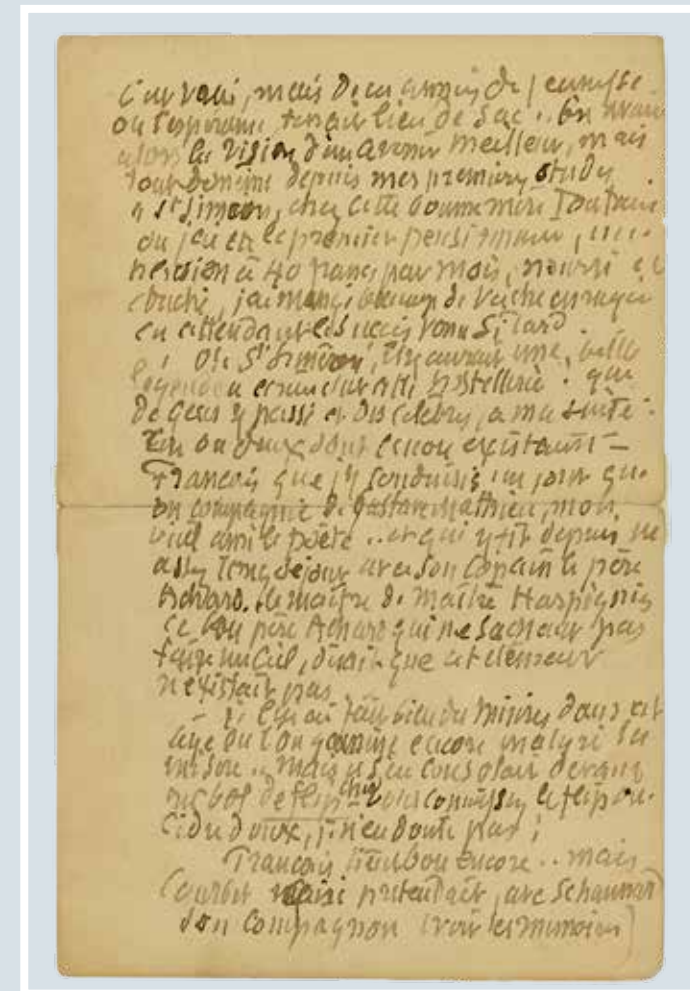 c'est vrai, mais Dieu années de jeunesse
où l'espérance tenait lieu de sac .. on avait
alors la vision d'un avenir meilleur, mais
tout domine depuis mes premières études
à St Siméon, chez cette bonne mère Toutain
où j'ai été le premier pensionnaire,
pension à 40 francs par mois, nourri et
couché, j'ai mangé beaucoup de vache enragée
en attendant le succès venu si tard.
! Oh St Siméon, il y aurait une belle
légende à écrire sur cette hostellerie. que
de gens y passé et des célèbres, à ma suite.
Un ou deux dont encore existant —
Français que j'y conduisis un jour
en compagnie de Gustave Mathieu, mon
vieil ami le poète .. et qui y fit depuis un
assez long séjour avec son copain le père
Achard, le maître de maître Harpignies
ce bon père Achard qui ne sachant pas
faire un ciel, disait que cet élément
n'existait pas
— Il y en eut bien du misères dans cet
âge où l'on gamine encore malgré
.. mais on s'en consolait devant
un bol de flip chez vous connaissez le flip ou
cidre doux, je n'en doute pas ;
Français tient bon encore .. mais
Courbet prétendait, avec Schanne
son compagnon (voir les mémoires)